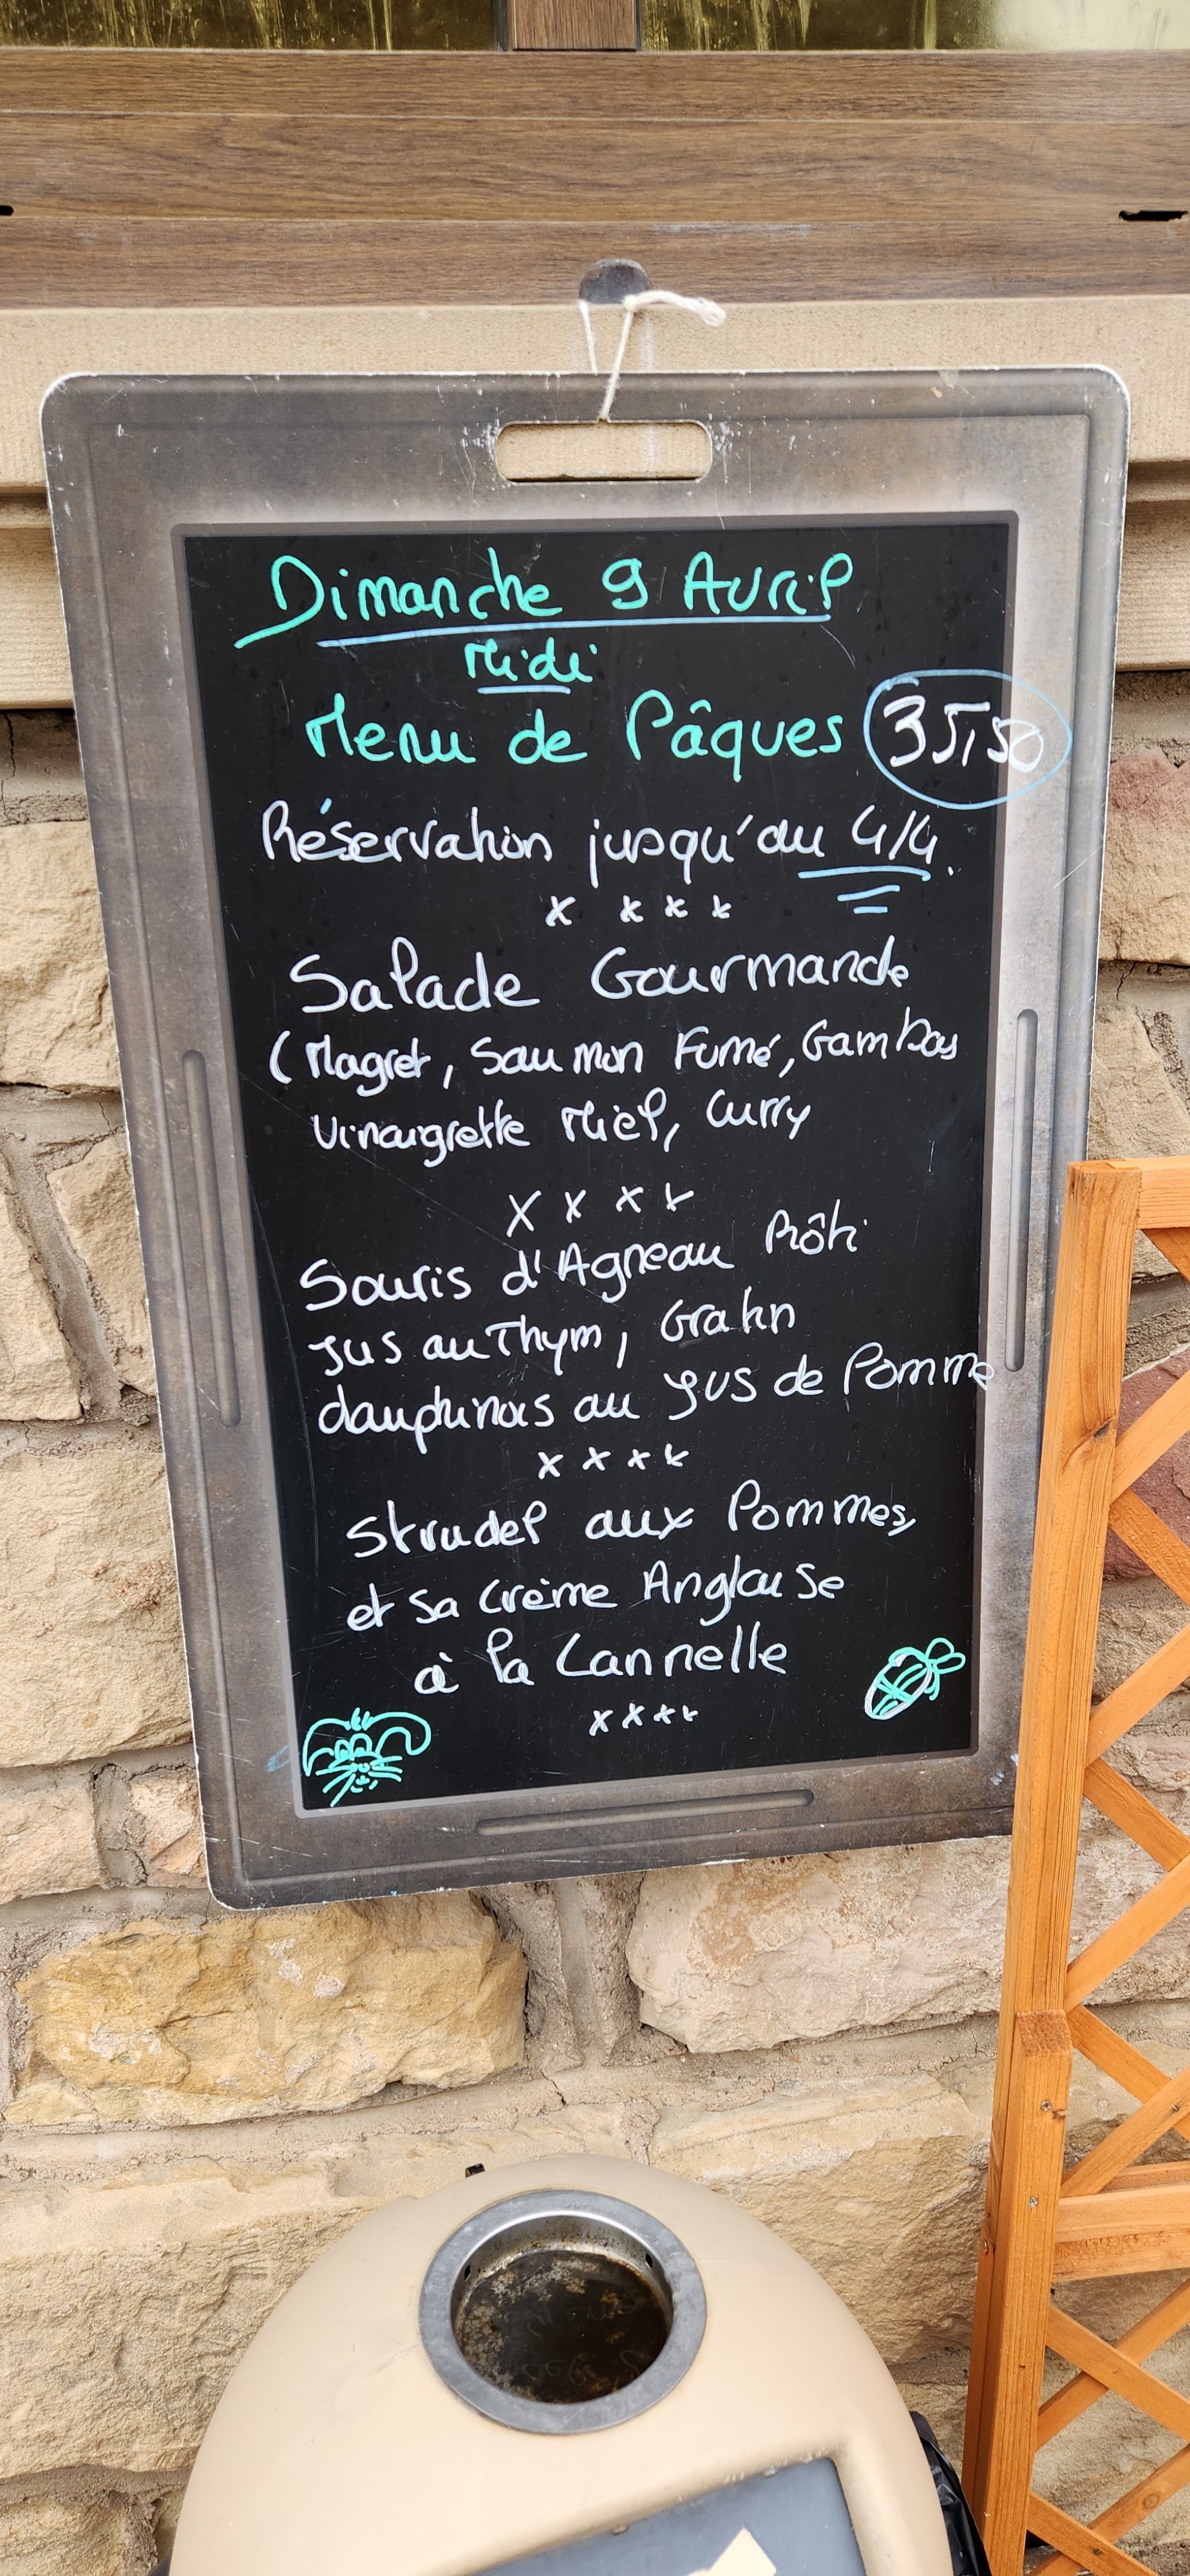 Dimanche 9 Avril
Midi
Menu de Pâques 35,50
Réservation jusqu'au 4/4.
x x x x
Salade Gourmande
(Magret, Saumon Fumé, Gambas
Vinaigrette Miel, Curry
x x x x
Souris d'Agneau Rôti
Jus au Thym, Gratin
dauphinois au Jus de Pomme
x x x x
Strudel aux Pommes,
et sa Crème Anglaise
à la Cannelle
x x x x